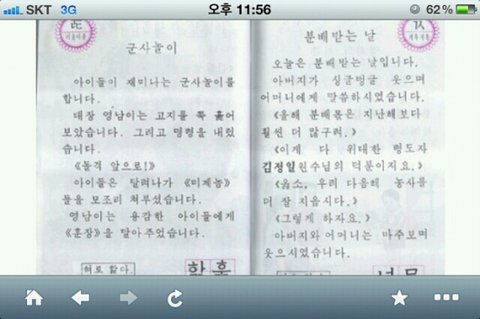 SKT 3G 오후 11:56 62%
군사놀이
아이들이 재미나는 군사놀이를
합니다.
대장 영남이는 고지를 쭉 훑어
보았습니다. 그리고 명령을 내렸
습니다.
《돌격 앞으로!》
아이들은 달려나가 《미제놈》
들을 모조리 쳐부셨습니다.
영남이는 용감한 아이들에게
《훈장》을 달아주었습니다.
분배받는 날
오늘은 분배받는 날입니다.
아버지가 싱글벙글 웃으며
어머니에게 말씀하시였습니다.
《올해 분배몫은 지난해보다
훨씬 더 많구려.》
《이게 다 위대한 령도자
김정일원수님의 덕분이지요.》
《옳소, 우리 다음해 농사를
더 잘 지읍시다.》
《그렇게 하자요.》
아버지와 어머니는 마주보며
웃으시였습니다.